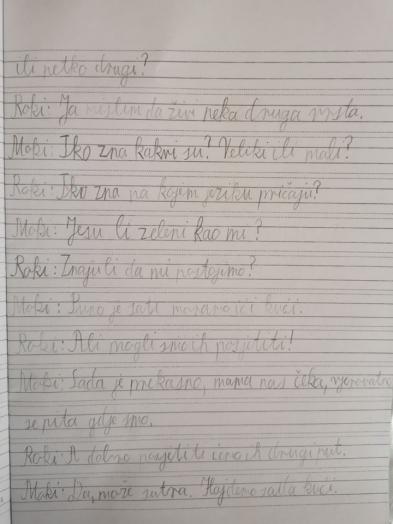 ili netko drugi?
Roki: Ja mislim da živi neka druga vrsta.
Moki: Tko zna kakvi su? Veliki ili mali?
Roki: Tko zna na kojem jeziku pričaju?
Moki: Jesu li zeleni kao mi?
Roki: Znaju li da mi postojimo?
Moki: Puno je sati moramo ići kući.
Roki: Ali mogli smo ih posjetiti!
Moki: Sada je prekasno, mama nas čeka, vjerovatno
se pita gdje smo.
Roki: A dobro posjetit ćemo ih drugi put.
Moki: Da, može sutra. Hajdemo sada kući.